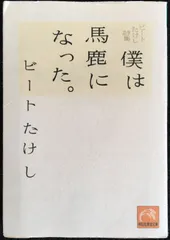 ビートたけし詩集
僕は
馬鹿に
なった。
ビートたけし